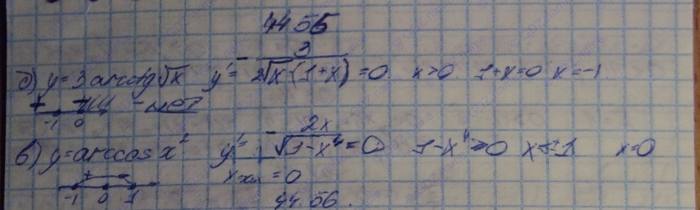 4455
д) y=3 arcctg √x y'= -3/(2√x·(1+x)) =0 x>0 1+x=0 x=-1
+ - нет
-1 0
б) y=arccos x² y'= -2x/√(1-x⁴) =0 1-x⁴>0 x<1 x=0
+ =0
-1 0 1 4456.